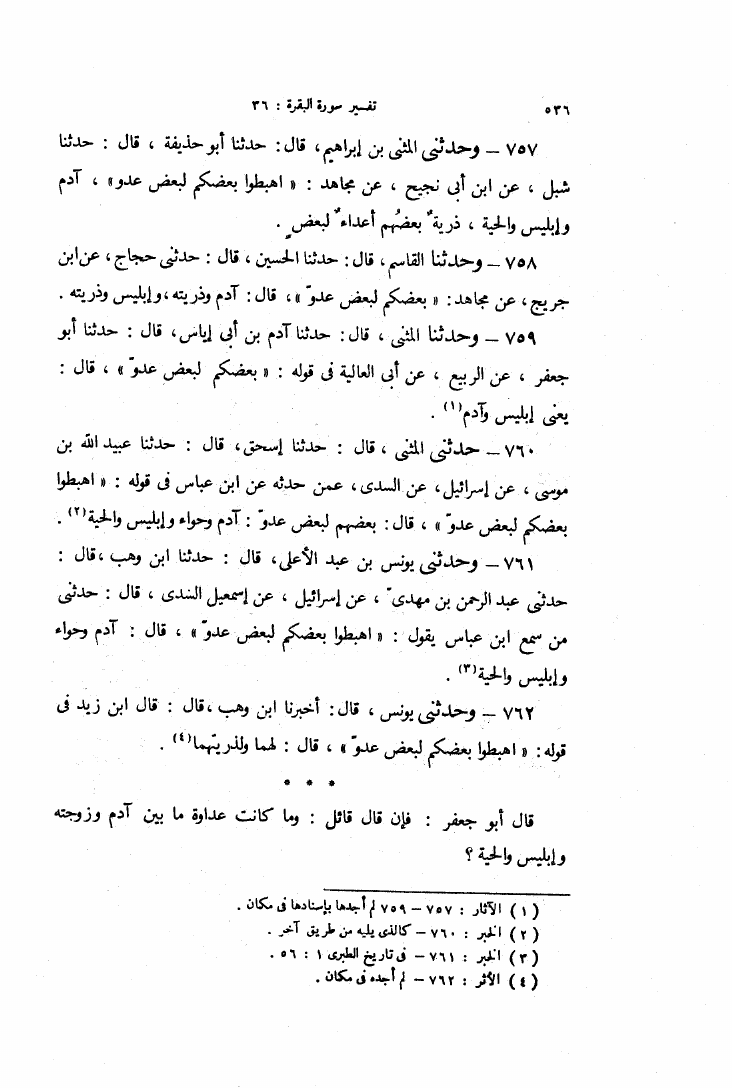 ٥٣٦
تفسير سورة البقرة : ٣٦
٧٥٧ – وحدثني المثنى بن إبراهيم، قال: حدثنا أبو حذيفة ، قال : حدثنا
شبل ، عن ابن أبي نجيح ، عن مجاهد : « اهبطوا بعضكم لبعض عدو» ، آدم
وإبليس والحية ، ذريةٌ بعضُهم أعداءٌ لبعضٍ .
٧٥٨ – وحدثنا القاسم، قال: حدثنا الحسين ، قال : حدثني حجاج، عن ابن
جريج، عن مجاهد: « بعضكم لبعض عدوّ »، قال: آدم وذريته، وإبليس وذريته .
٧٥٩ – وحدثنا المثنى ، قال: حدثنا آدم بن أبي إياس، قال : حدثنا أبو
جعفر ، عن الربيع ، عن أبي العالية في قوله : « بعضكم لبعض عدوّ » ، قال :
يعني إبليس وآدم(١) .
٧٦٠ – حدثني المثنى ، قال : حدثنا إسحق، قال : حدثنا عبيد الله بن
موسى ، عن إسرائيل، عن السدى، عمن حدثه عن ابن عباس في قوله : « اهبطوا
بعضكم لبعض عدوّ » ، قال: بعضهم لبعض عدوّ : آدم وحواء وإبليس والحية(٢) .
٧٦١ – وحدثني يونس بن عبد الأعلى، قال : حدثنا ابن وهب ،قال :
حدثني عبد الرحمن بن مهدىّ ، عن إسرائيل ، عن إسمعيل السُّدى ، قال : حدثني
من سمع ابن عباس يقول : « اهبطوا بعضكم لبعض عدوّ » ، قال : آدم وحواء
وإبليس والحية(٣) .
٧٦٢ – وحدثني يونس ، قال: أخبرنا ابن وهب ،قال : قال ابن زيد في
قوله: « اهبطوا بعضكم لبعض عدوّ » ، قال : لهما ولذريتهما(٤) .
* * *
قال أبو جعفر : فإن قال قائل : وما كانت عداوة ما بين آدم وزوجته
وإبليس والحية ؟
(١) الآثار : ٧٥٧ – ٧٥٩ لم أجدها بإسنادها في مكان .
(٢) الخبر : ٧٦٠ – كالذى يليه من طريق آخر .
(٣) الخبر : ٧٦١ – في تاريخ الطبرى ١ : ٥٦ .
(٤) الأثر : ٧٦٢ – لم أجده في مكان .